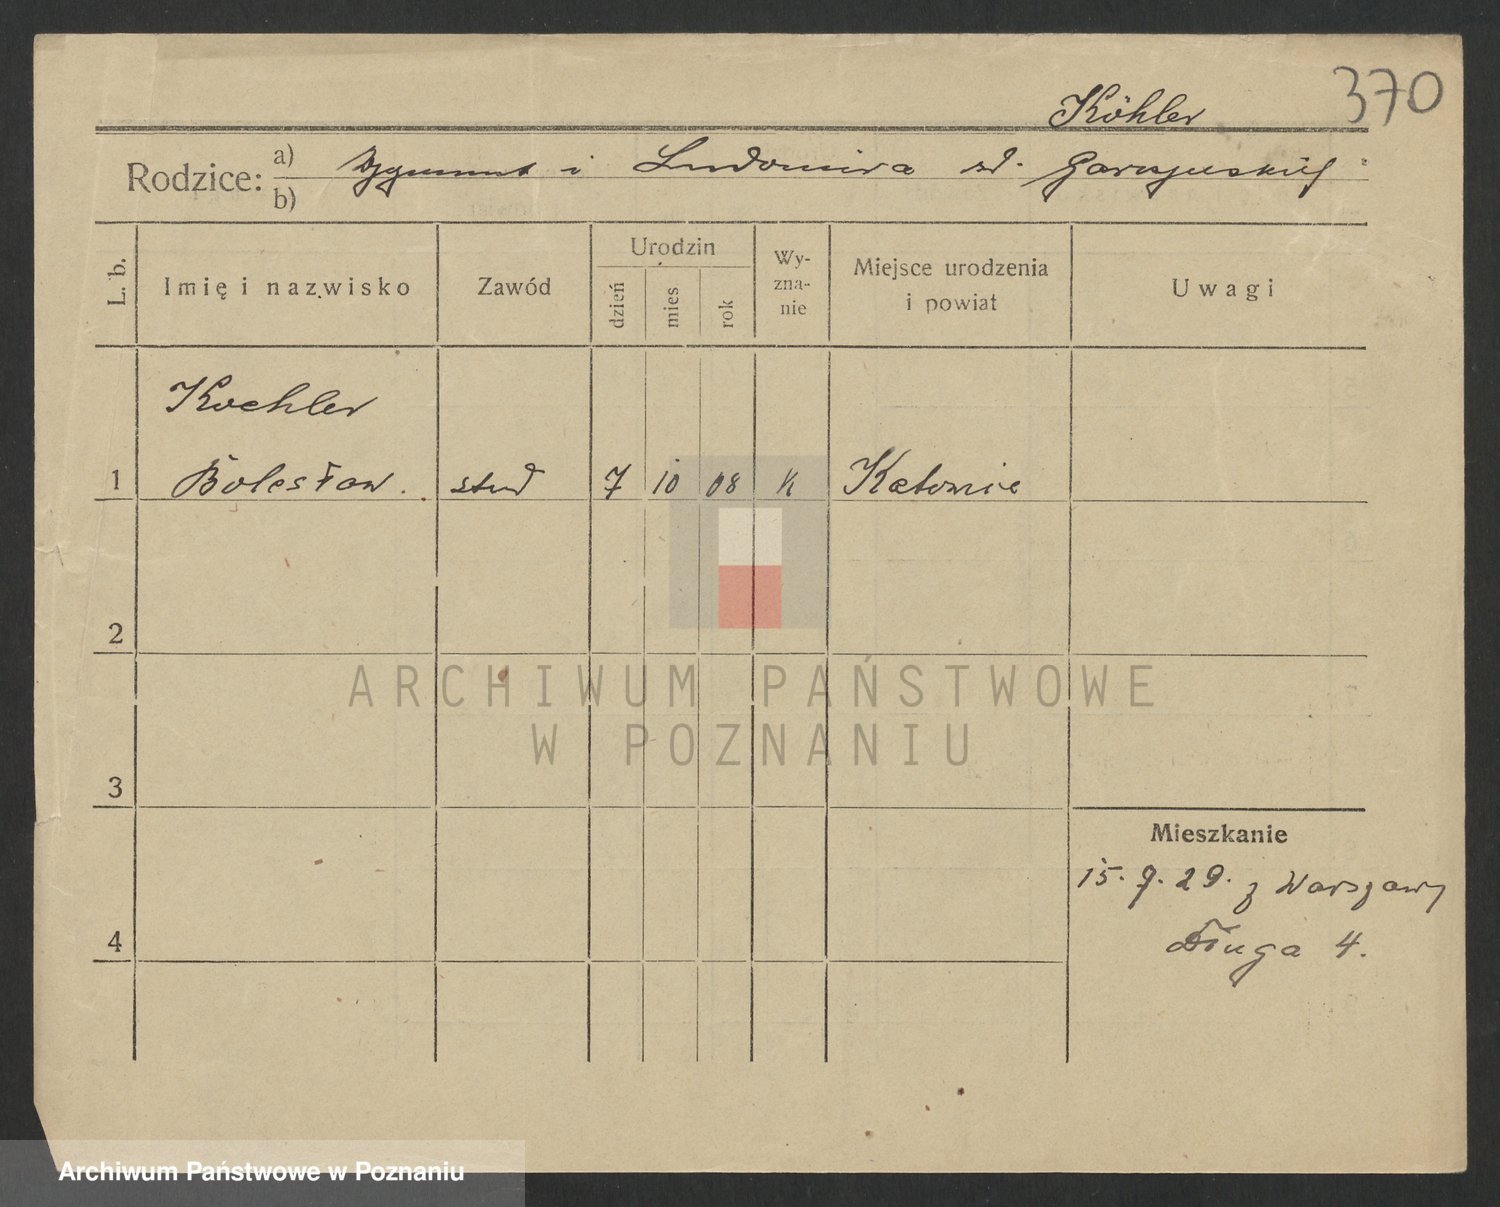 370
Köhler
Rodzice: a) Zygmunt i Ludomira zd.
b)
L. b.
Imię i nazwisko
Zawód
Urodzin
dzień
mies
rok
Wy-
zna-
nie
Miejsce urodzenia
i powiat
Uwagi
Koehler
1 Bolesław stud 7 10 08 K Katowice
2
ARCHIWUM PAŃSTWOWE
W POZNANIU
3
Mieszkanie
15. 9. 29. z Warszawy
4 Długa 4.
Archiwum Państwowe w Poznaniu